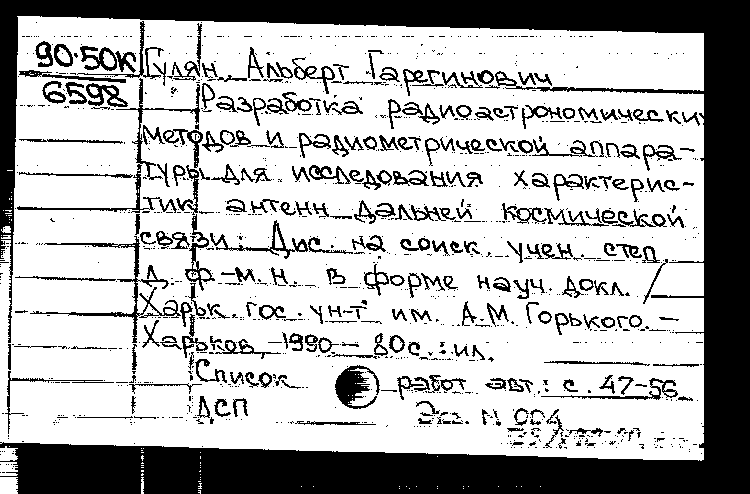 90-50К Гулян, Альберт Гарегинович
6598 Разработка радиоастрономических
методов и радиометрической аппара-
туры для исследования характерис-
тик антенн дальней космической
связи: Дис. на соиск. учен. степ.
д. ф.-м.н. в форме науч. докл. /
Харьк. гос. ун-т им. А.М. Горького. –
Харьков, 1990 – 80с.: ил.
Список работ авт.: с. 47-56
ДСП Экз. N 004